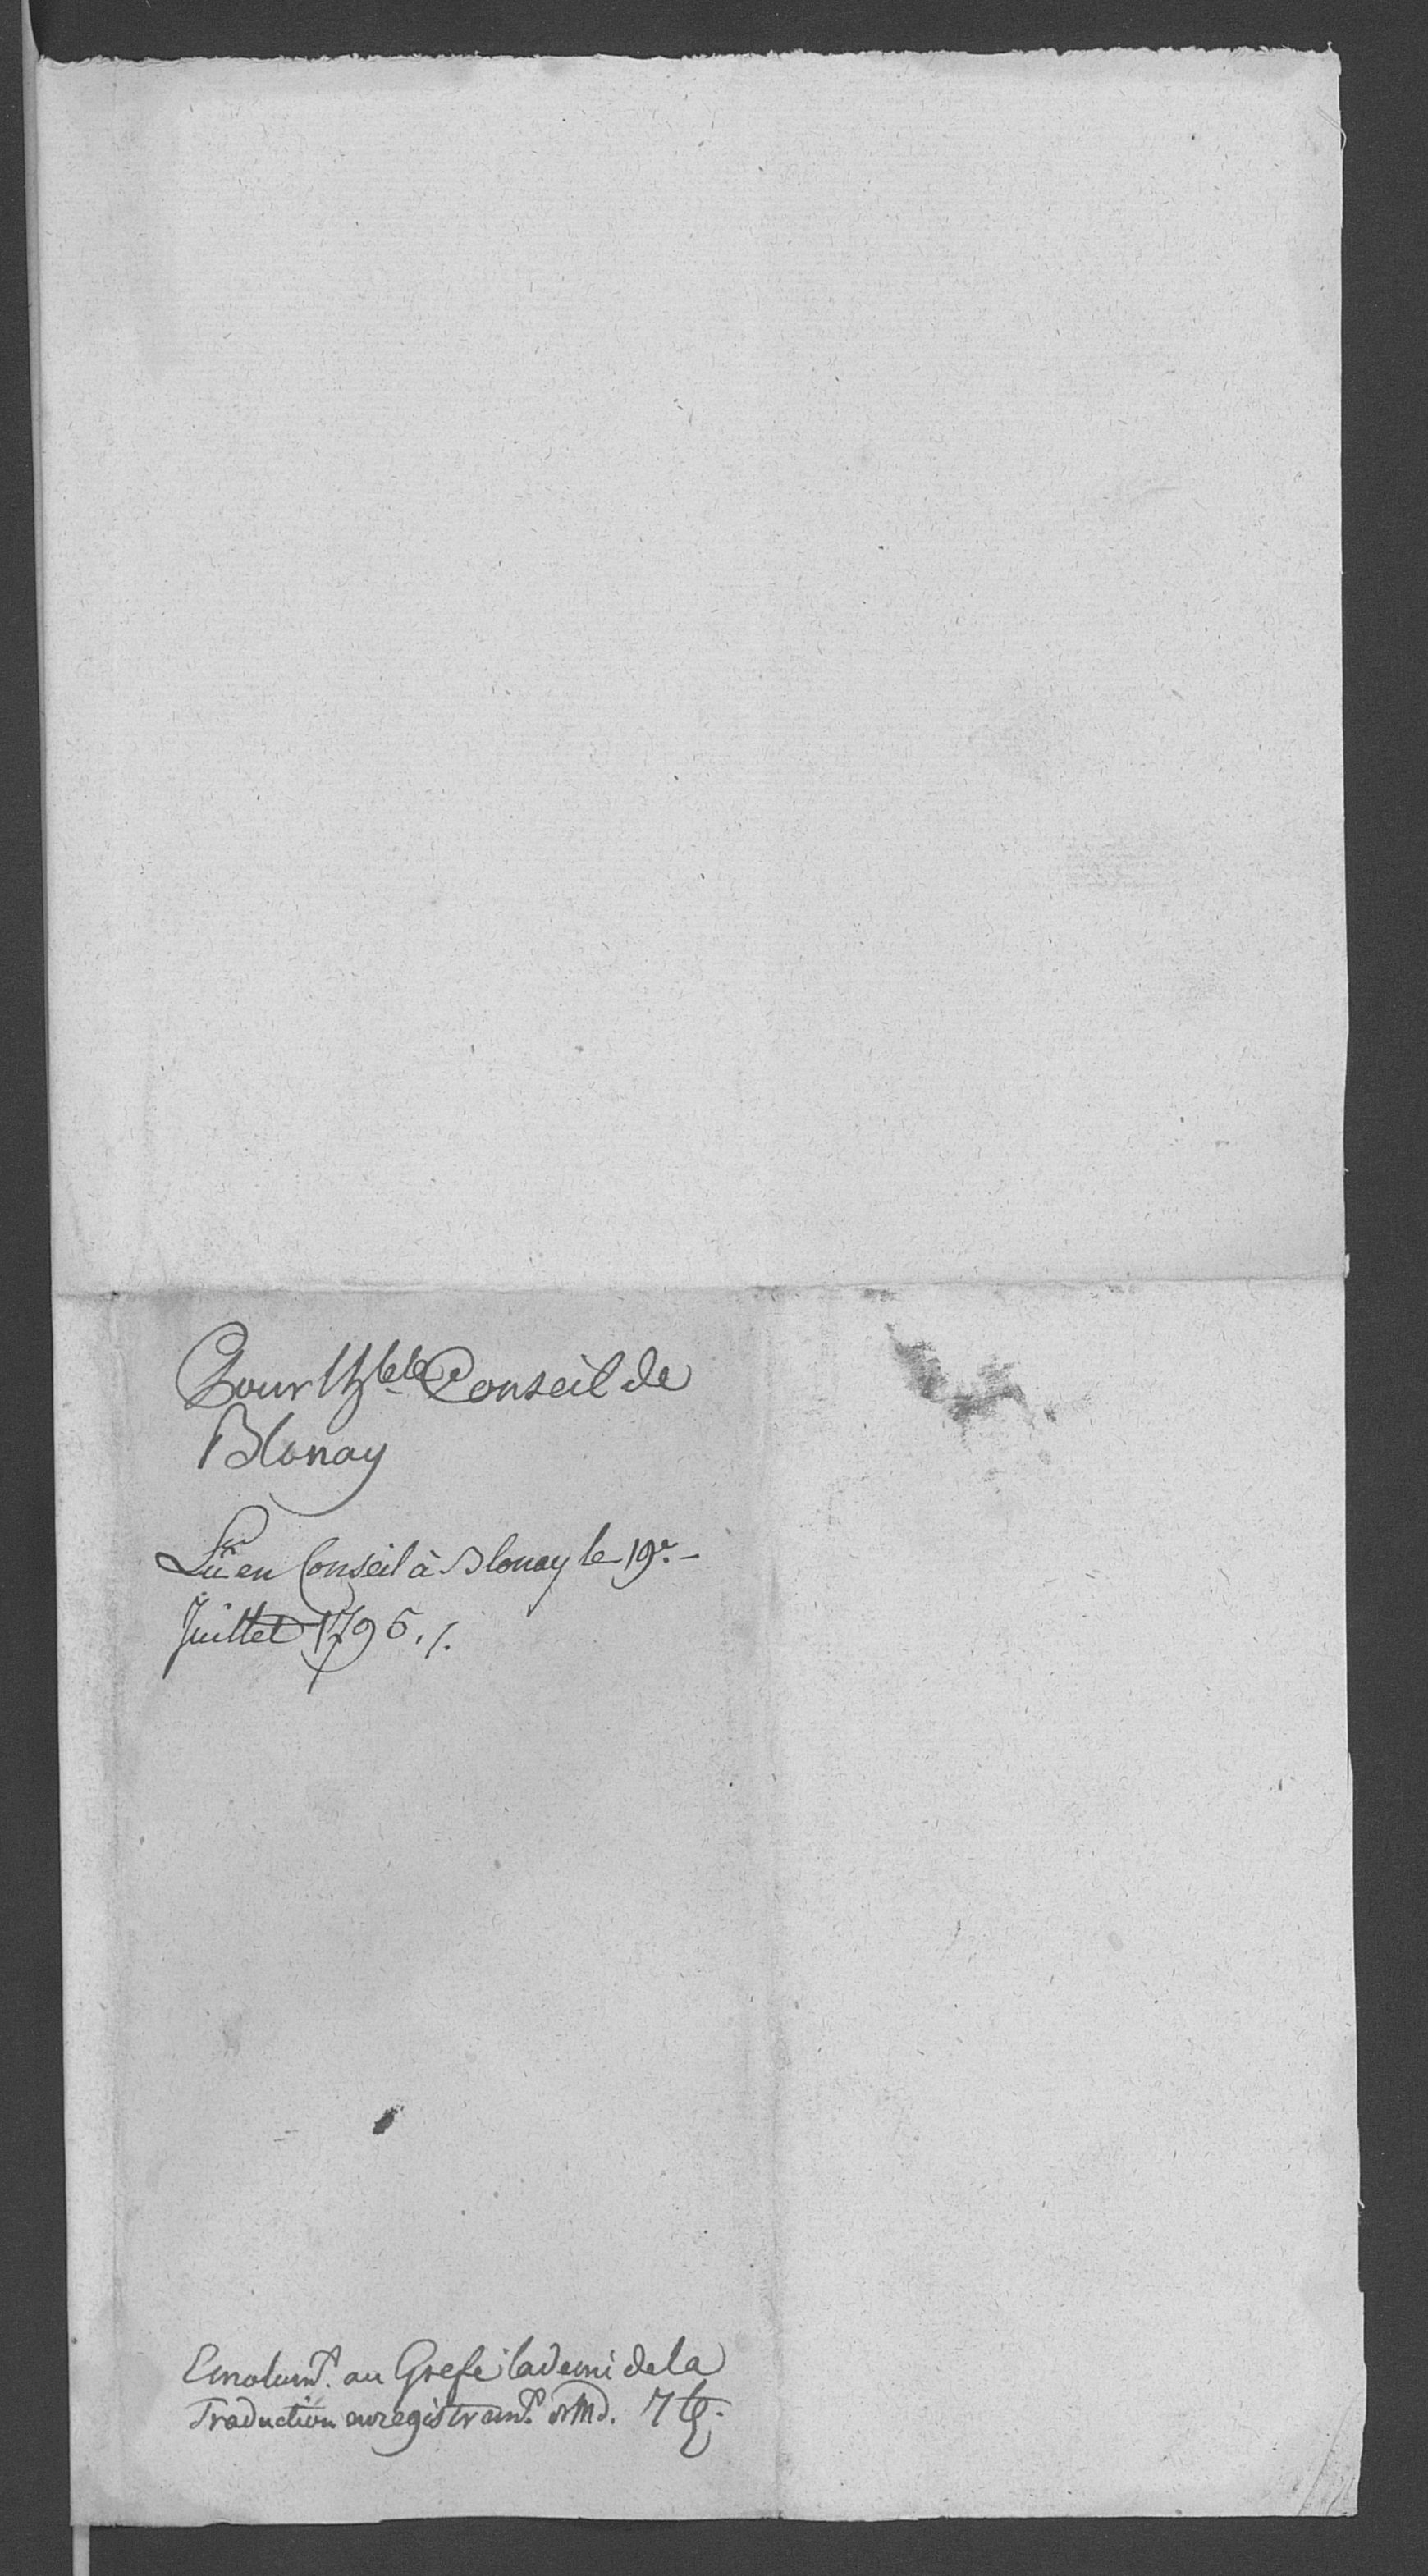 Pour l'hble Conseil de
Blonay
Lû en Conseil à Blonay le 19e. -
Juillet 1795 ./.
Emolumt. au Grefe la demi de la
Traduction enregistremt. 7